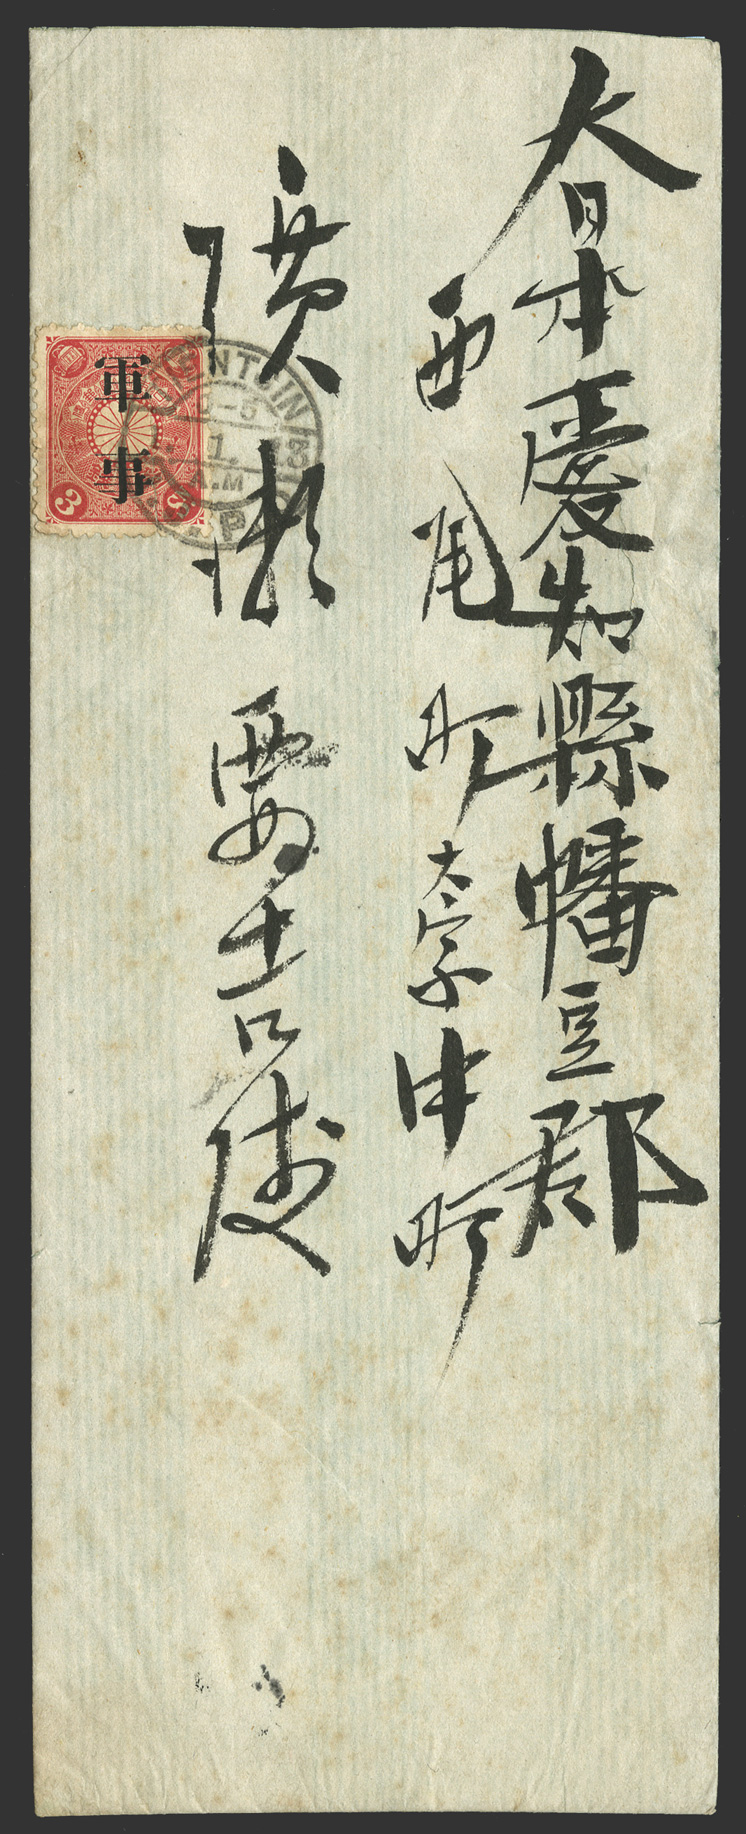 大日本愛知縣幡豆郡
西尾町大字中町
廣瀬要吉殿
軍事
3 3
TIENTSIN
-5
1. 13
A.M
JAP